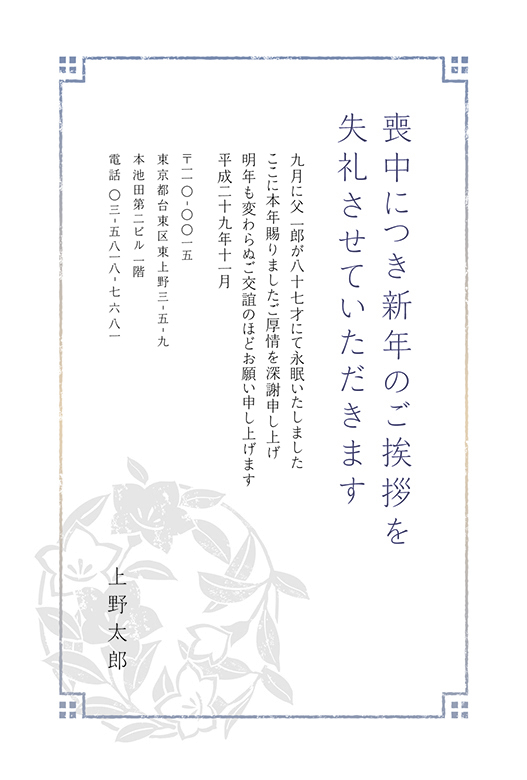 喪中につき新年のご挨拶を
失礼させていただきます
九月に父一郎が八十七才にて永眠いたしました
ここに本年賜りましたご厚情を深謝申し上げ
明年も変わらぬご交誼のほどお願い申し上げます
平成二十九年十一月
〒一一〇-〇〇一五
東京都台東区東上野三-五-九
本池田第二ビル一階
電話 〇三-五八一八-七六八一
上野太郎